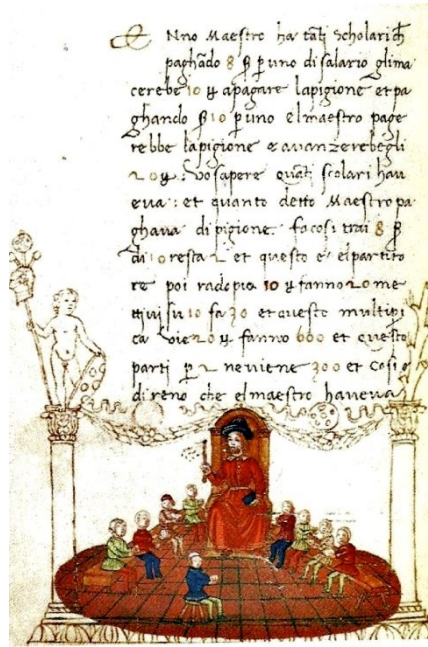 E Nno Maestro ha tãti scholari ch
paghãdo 8 ß p uno di salario glima
cerebe 10 apagare lapigione et pa
ghando ß 10 p uno elmaestro page
rebbe lapigione e avanzerebegli
20 : Vo sapere quãti scolari hau
eua: et quanto detto Maestro pa
ghaua di pigione. fa cosi trai 8 ß
di 10 resta 2 et questo e elpartito
re poi radopia 10 fanno 20 me
ttiui su 10 fa 30 et questo multipi
ca vie 20 fanno 600 et questo
parti p 2 neviene 300 et Cosi
direno che elmaestro haueua